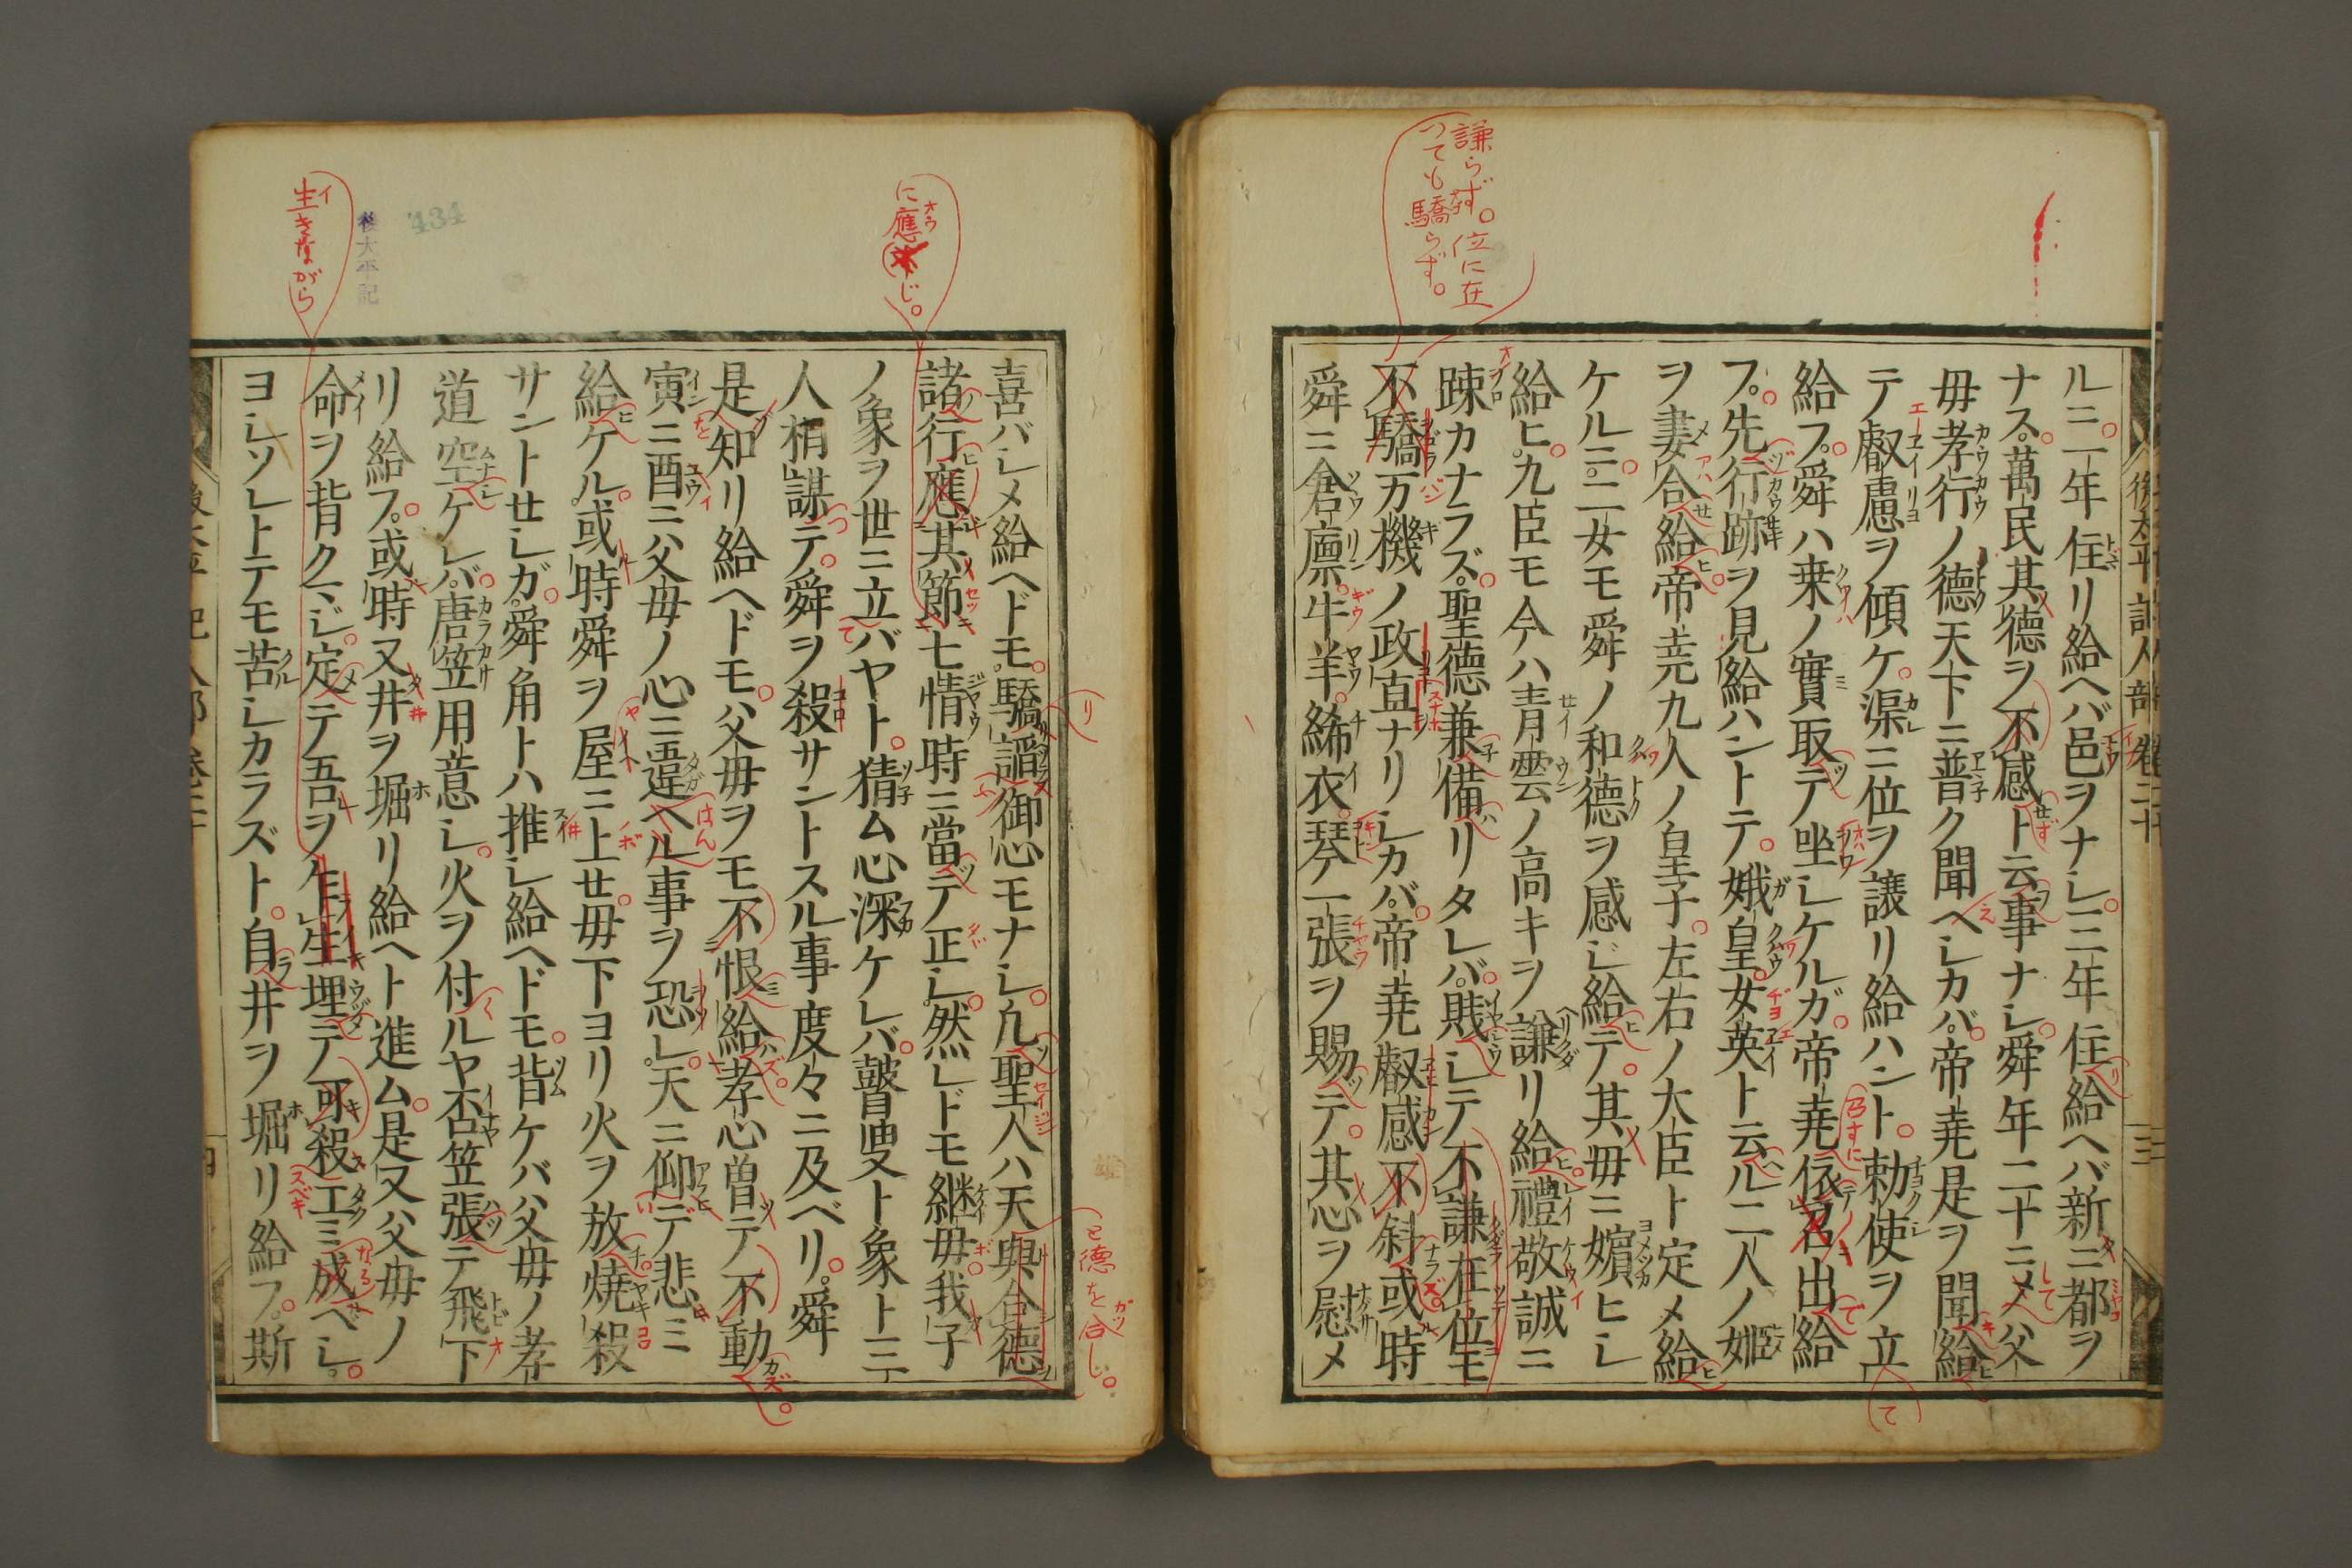 謙らず。位に在
つても驕らず。
後太平記人部 卷二十 三
ル三。一年住リ給ヘバ邑ヲナシ。二年住給ヘバ新ニ都ヲ
ナス。萬民其德ヲ不感ト云事ナシ。舜年二十ニメ父
母孝行ノ德天下ニ普ク聞ヘシカバ。帝堯是ヲ聞給
テ叡慮ヲ傾ケ。渠ニ位ヲ讓リ給ハント。勅使ヲ立
給フ。舜ハ桒ノ實取テ坐シケルガ。帝堯依召出給
フ。先行跡ヲ見給ハントテ。娥皇女英ト云ル二人ノ姬
ヲ妻合給。帝堯九人ノ皇子。左右ノ大臣ト定メ給
ケルニ。二女モ舜ノ和德ヲ感ジ給テ。其毋ニ嬪ヒシ
給ヒ。九臣モ今ハ青雲ノ高キヲ謙リ給禮敬誠ニ
踈カナラズ。聖德兼備リタレバ。賎シテ不謙在位モ
不驕万機ノ政直ナリシカバ。帝堯叡感不斜或時
舜ニ倉廩。牛羊。絺衣。琴一張ヲ賜テ。其心ヲ慰メ
に應じ。
と德を合し。
434
後太平記
生きながら
喜バシメ給ヘドモ。驕謟御心モナシ。凡聖人ハ天與合德
諸行應其節七情時ニ當テ正シ。然レドモ継毋我子
ノ象ヲ世ニ立バヤト。猜ム心深ケレバ。瞽叟ト象ト三
人梢謀テ。舜ヲ殺サントスル事度々ニ及ベリ。舜
是知リ給ヘドモ。父毋ヲモ不恨給孝心曽テ不動
寅ニ酉ニハ父毋ノ心ニ違ヘル事ヲ恐レ。天ニ仰デ悲ミ
給ケル。或時舜ヲ屋ニ上セ。毋下ヨリ火ヲ放燒殺
サントセシガ。舜角トハ推シ給ヘドモ。背ケバ父毋ノ孝
道空ケレバ。唐笠用意シ。火ヲ付ルヤ否笠張テ飛下
リ給フ。或時又井ヲ堀リ給ヘト進ム。是又父毋ノ
命ヲ背クマジ。定テ吾ヲ乍生埋テ可殺工ミ成ベシ。
ヨシソレトテモ苦シカラズト。自井ヲ堀リ給フ。斯